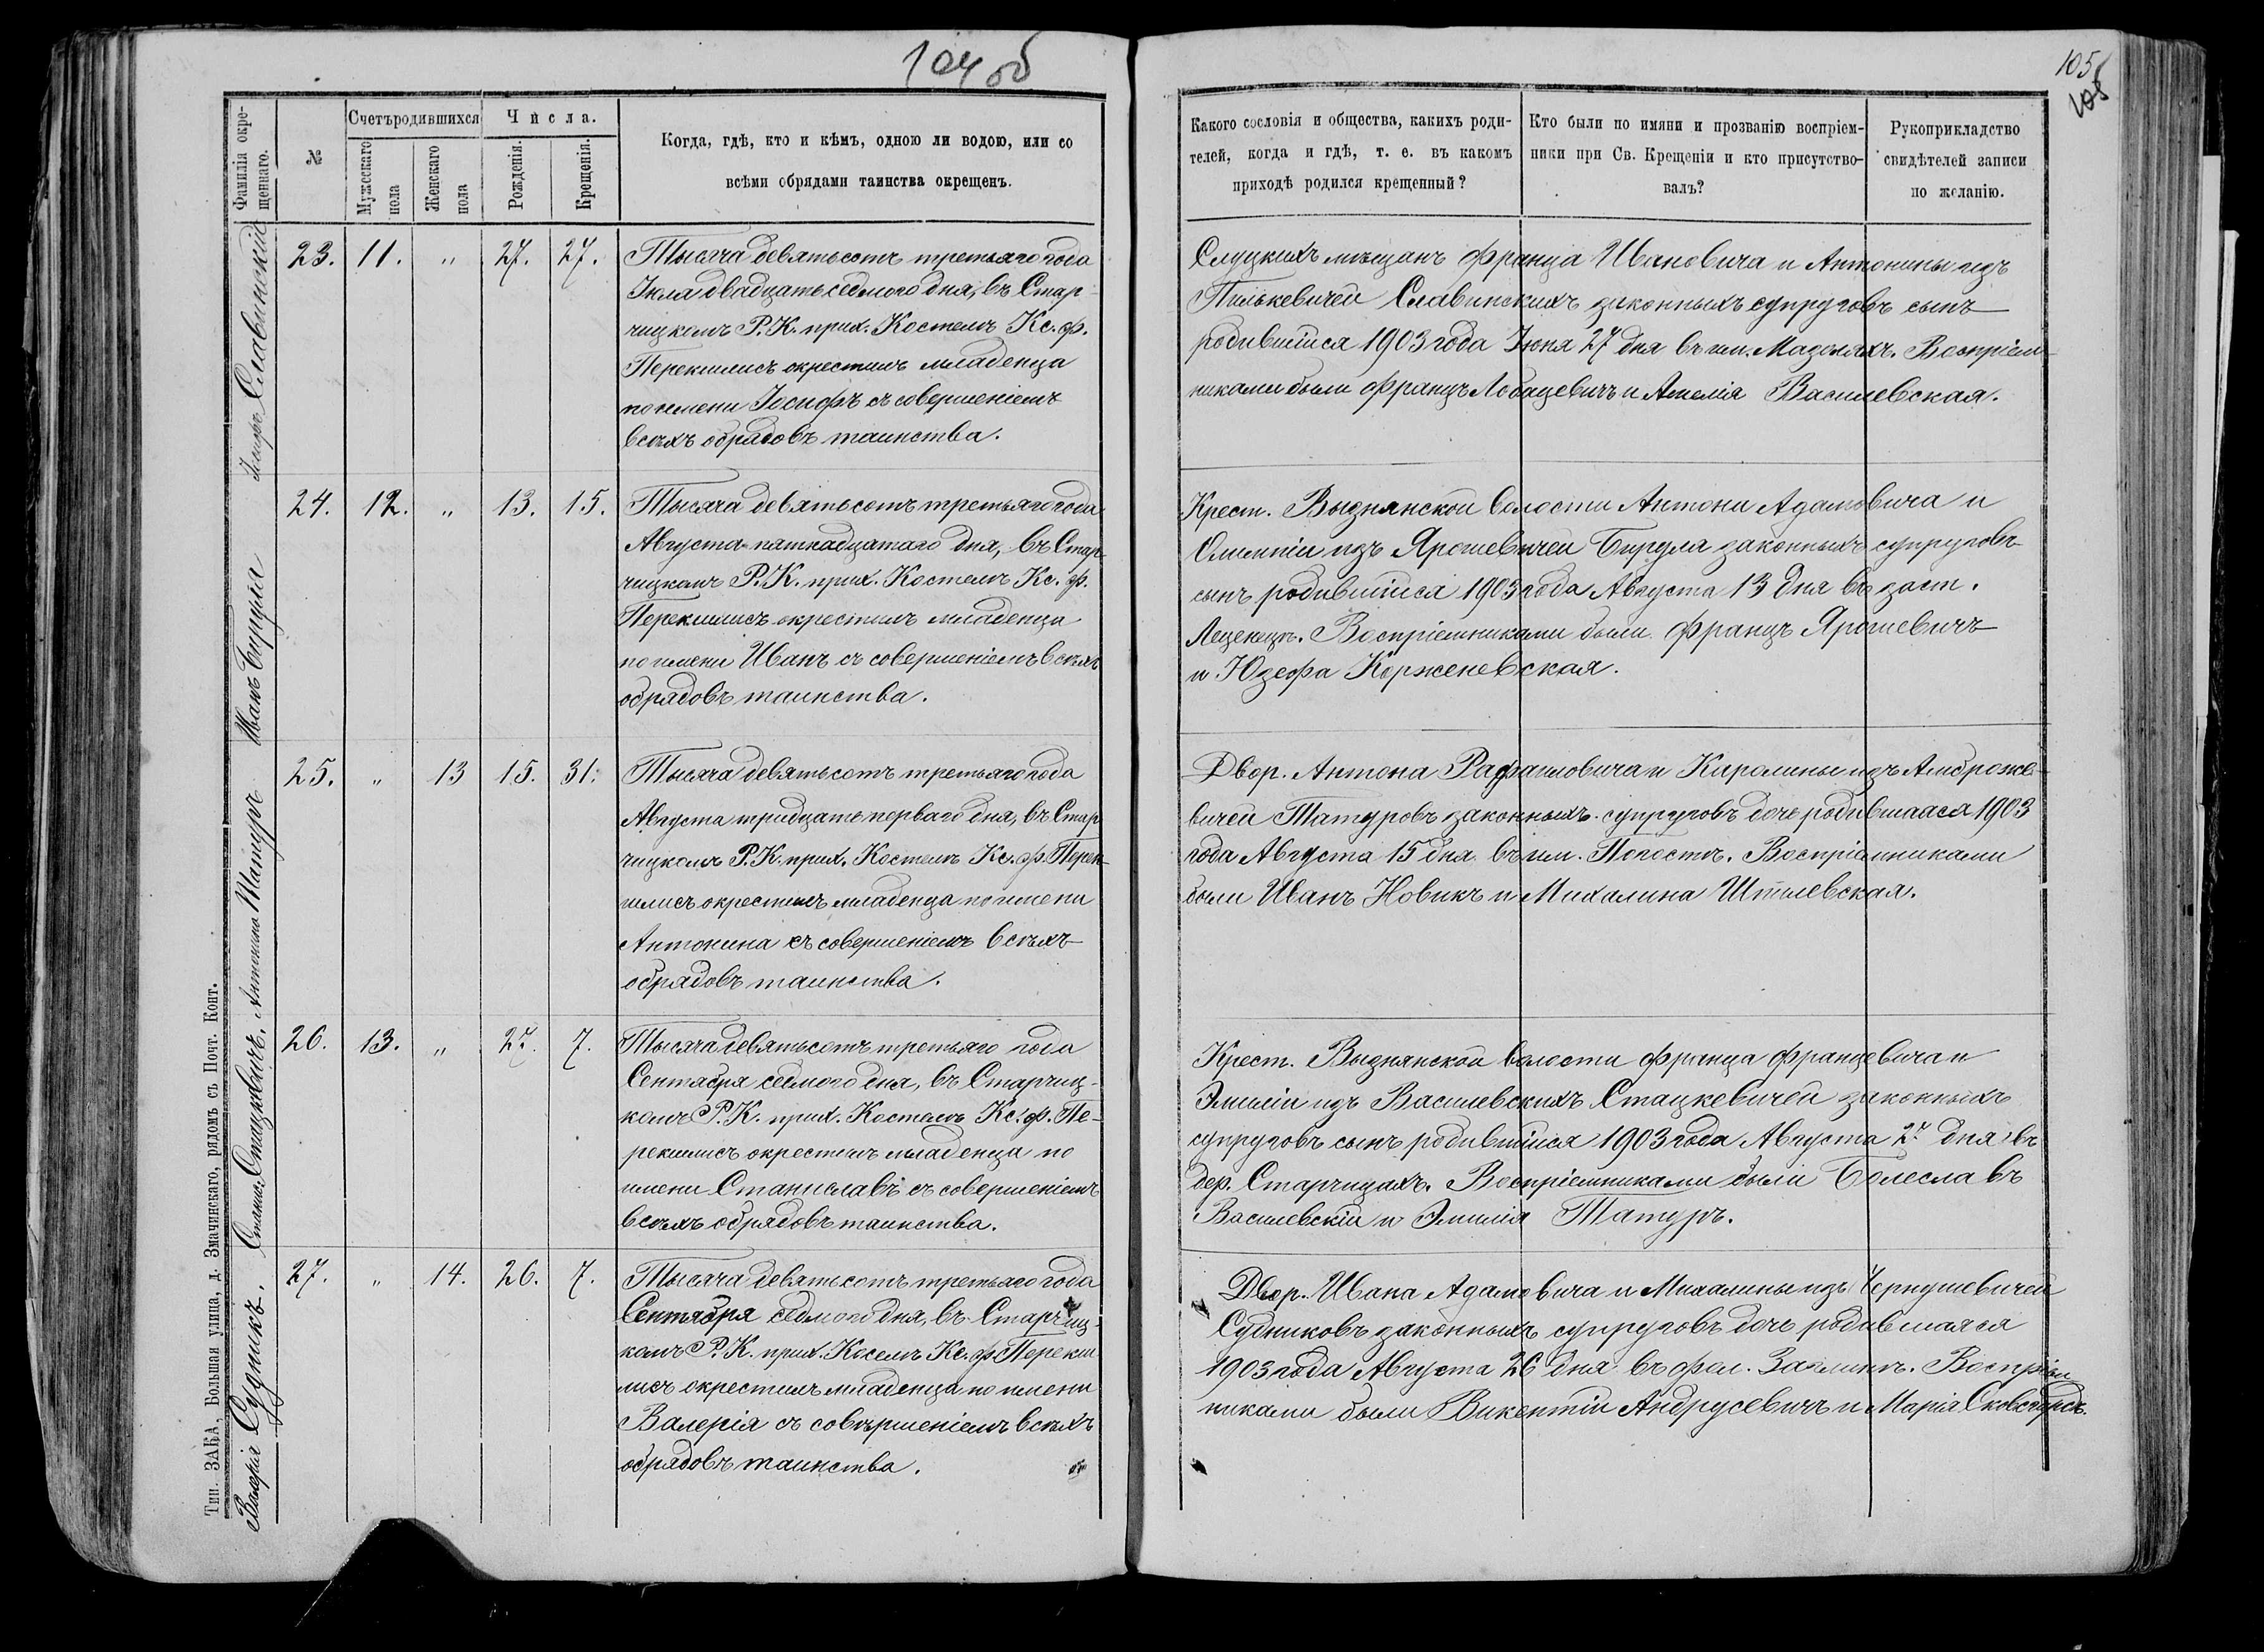 104 об
105
105
Фамилія окре-
щеннаго.
№
Счетъ родившихся
Мужескаго
пола
Женскаго
пола
Числа.
Рожденія.
Крещенія.
Когда, гдѣ, кто и кѣмъ, одною ли водою, или со
всѣми обрядами таинства окрещенъ.
Какого сословія и общества, какихъ роди-
телей, когда и гдѣ, т. е. въ какомъ
приходѣ родился крещенный?
Кто были по имяни и прозванію воспріем-
ники при Св. Крещеніи и кто присутство-
валъ?
Рукоприкладство
свидѣтелей записи
по желанію.
Іосифъ Славинскій
23. 11. " 27. 27.
Тысяча девятьсотъ третьяго года
Іюля двадцать седмого дня, въ Стар-
чицкомъ Р. К. прих. Костелѣ Кс. ф.
Перекшлисъ окрестилъ младенца
по имени Іосифъ съ совершеніемъ
всѣхъ обрядовъ таинства.
Слуцкихъ мѣщанъ Франца Ивановича и Антонины изъ
Пилькевичей Славинскихъ законныхъ супруговъ сынъ
родившійся 1903 года Іюня 27 дня въ им. Мазоляхъ. Воспріем-
никами были Францъ Лобацевичъ и Амелія Василевская.
Иванъ Бируля
24. 12. " 13. 15.
Тысяча девятьсотъ третьяго года
Августа пятнадцатаго дня, въ Стар-
чицкомъ Р. К. прих. Костелѣ Кс. ф.
Перекшлисъ окрестилъ младенца
по имени Иванъ съ совершеніемъ всѣхъ
обрядовъ таинства.
Крест. Вызнянской волости Антона Адамовича и
изъ Ярошевичей Бируля законныхъ супруговъ
сынъ родившійся 1903 года Августа 13 дня въ заст.
Воспріемниками были Францъ Ярошевичъ
и Юзефа Корженевская.
Антонина Татуръ
25. " 13 15. 31.
Тысяча девятьсотъ третьяго года
Августа тридцать перваго дня, въ Стар
чицкомъ Р. К. прих. Костелѣ Кс. ф. Перек-
шлисъ окрестилъ младенца по имени
Антонина съ совершеніемъ всѣхъ
обрядовъ таинства.
Двор. Антона Рафаиловича и Каролины изъ Амброже-
вичей Татуровъ законныхъ супруговъ дочь родившаяся 1903
года Августа 15 дня въ им. Погостѣ. Воспріемниками
были Иванъ Новикъ и Михалина Штилевская.
Станис. Стацкевичъ.
26. 13. " 27. 7.
Тысяча девятьсотъ третьяго года
Сентября седмого дня, въ Старчиц-
комъ Р. К. прих. Костелѣ Кс. ф. Пе-
рекшлисъ окрестилъ младенца по
имени Станиславъ съ совершеніемъ
всѣхъ обрядовъ таинства.
Крест. Вызнянской волости Франца Францевича и
Эмиліи изъ Василевскихъ Стацкевичей законныхъ
супруговъ сынъ родившійся 1903 года Августа 27 дня въ
дер. Старчицахъ. Воспріемниками были Болеславъ
Василевскій и Эмилія Татуръ.
Валерія Судникъ.
27. " 14. 26. 7.
Тысяча девятьсотъ третьяго года
Сентября седмого дня, въ Старчиц-
комъ Р. К. прих. Коселѣ Кс. ф. Перекш-
лисъ окрестилъ младенца по имени
Валерія съ совершеніемъ всѣхъ
обрядовъ таинства.
Двор. Ивана Адамовича и Михалины изъ Чернушевичей
Судниковъ законныхъ супруговъ дочь родившаяся
1903 года Августа 26 дня въ фол. Воспріем
никами были Викентій Андрусевичъ и Марія
Тип. ЗАКА, Большая улица, д. Змачинскаго, рядомъ съ Почт. Конт.